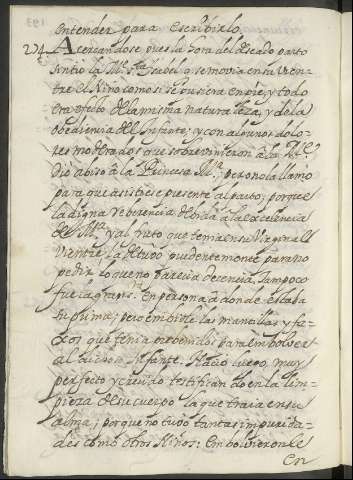 entender para escribirlo.
224 Acercandose pues la hora del deseado parto
sintio la M.e S.ta Isabel que se movia en su vien=
tre el Niño como si se pusiera en pie, y todo
era efecto de la misma naturaleza, y de la
obediencia del Infante; y con algunos dolo=
res moderados que sobrevinieron à la M.e
diò aviso à la Princesa M.a, pero no la llamò
para que asistiese presente al parto; porque
la digna reverencia debida à la excelencia
de M.a y al fruto que tenia en su Virginal
Vientre la detuvo prudentemente para no
pedir lo que no parecia decencia. Tampoco
fue la gran S.ra en persona à donde estaba
su prima; pero embiole las mantillas y fa=
xos que tenia prevenidos para embolver
al dichoso Infante. Naciò luego, muy
perfecto y crecido testificando en la lim=
pieza de su cuerpo la que traìa en su
alma; porque no tuvo tantas impurida=
des como otros Niños: Embolvieronle
en